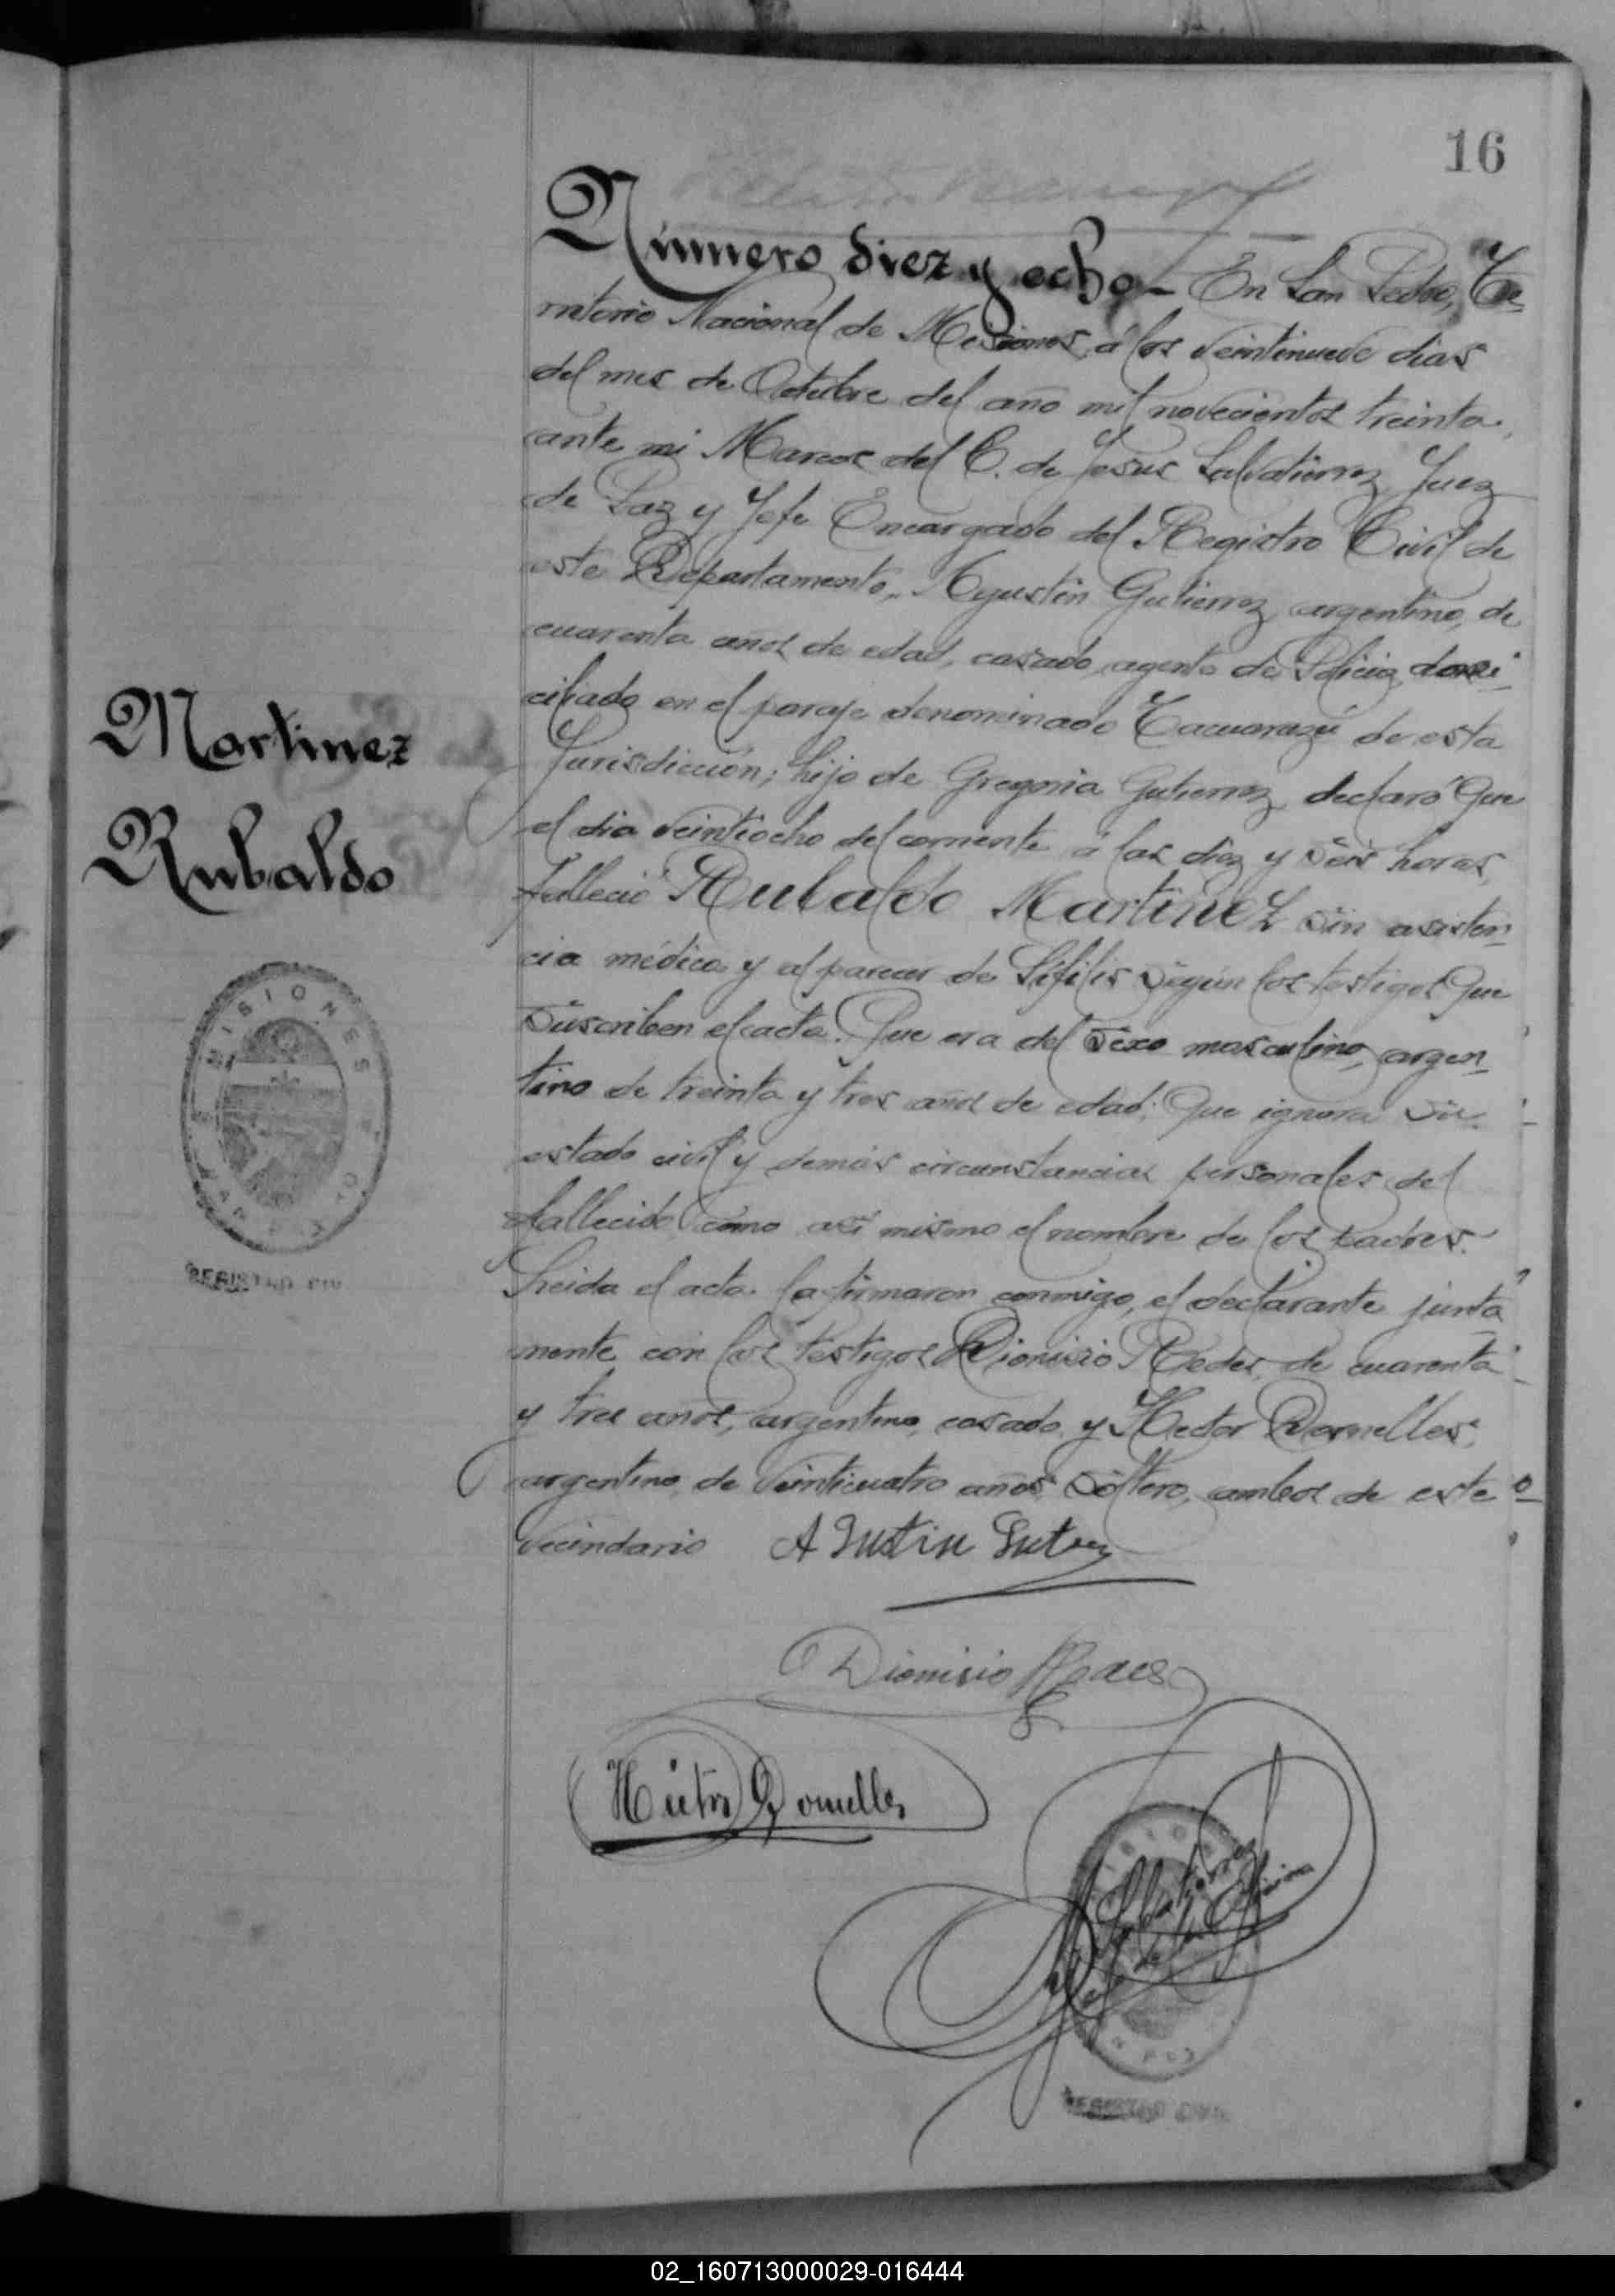 16
Número diez y ocho - En San Pedro, Te-
rritorio Nacional de Misiones, á los veintinueve dias
del mes de Octubre del año mil novecientos treinta,
ante mi Marcos del C. de Jesus Salvatierrez, Juez
de Paz y Jefe Encargado del Registro Civil de
este Departamento, Agustin Gutierrez, argentino, de
cuarenta años de edad, casado, agente de Policia, domi-
ciliado en el paraje denominado Tacuaruzú de esta
Jurisdicción; hijo de Gregoria Gutierrez, declaró Que
el dia veintiocho del corriente á las diez y seis horas,
falleció Rubaldo Martinez sin asisten-
cia médica y al parecer de Sifilis según los testigos Que
suscriben el acta. Que era del sexo masculino, argen-
tino de treinta y tres años de edad; Que ignora su
estado civil y demás circunstancias personales del
fallecido como asi mismo el nombre de los padres.
Leida el acta la firmaron conmigo, el declarante junta
mente con los testigos Dionisio de cuarenta
y tres años, argentino, casado y Hector Dornelles,
argentino, de veinticuatro años, soltero, ambos de este
vecindario Agustin
Martinez
Rubaldo
MISIONES
REGISTRO CIV
Dionisio
Hector Dornelles
Salvatierrez
Jefe de la Oficina
REGISTRO CIVIL
02_160713000029-016444